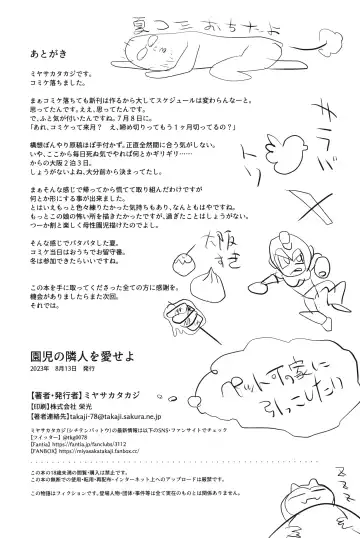 夏コミおちたよ
あとがき
ミヤサカタカジです。
コミケ落ちました。
まぁコミケ落ちても新刊は作るから大してスケジュールは変わらんなーと。
思ってたんです。ええ、思ってたんです。
で、ふと気が付いたんですね。7月8日に。
「あれ、コミケって来月？　え、締め切りってもう1ヶ月切ってるの？」
構想ばんやり原稿ほぼ手付かず。正直全然間に合う気がしない。
いや、ここから毎日死ぬ気でやれば何とかギリギリ……
からの大阪2泊3日。
しょうがないよね、大分前から決まってたし。
まぁそんな感じで帰ってから慌てて取り組んだわけですが
何とか形にする事が出来ました。
とはいえもっと色々練りたかった気持ちもあり、なんともはやですね。
もっとこの娘の怖い所を描きたかったですが、過ぎたことはしょうがない。
つーか割と楽しく母性園児描けたのでよし。
そんな感じでバタバタした夏。
コミケ当日はおうちでお留守番。
冬は参加できたらいいですね。
この本を手に取ってくださった全ての方に感謝を。
機会がありましたらまた次回。
それでは。
大阪
すき
ペット可の家に
引っこしたい
園児の隣人を愛せよ
2023年　8月13日　発行
【著者・発行者】ミヤサカタカジ
【印刷】株式会社 栄光
【著者連絡先】takaji-78@takaji.sakura.ne.jp
ミヤサカタカジ(シチテンバットウ)の最新情報は以下のSNS・ファンサイトでチェック
【ツイッター】@tkg0078
【Fantia】https://fantia.jp/fanclubs/3112
【FANBOX】https://miyasakatakaji.fanbox.cc/
この本の18歳未満の閲覧・購入は禁止です。
この本の無断での使用・転用・再配布・インターネット上へのアップロードは厳禁です。
この物語はフィクションです。登場人物・団体・事件等は全て実在のものとは関係ありません。